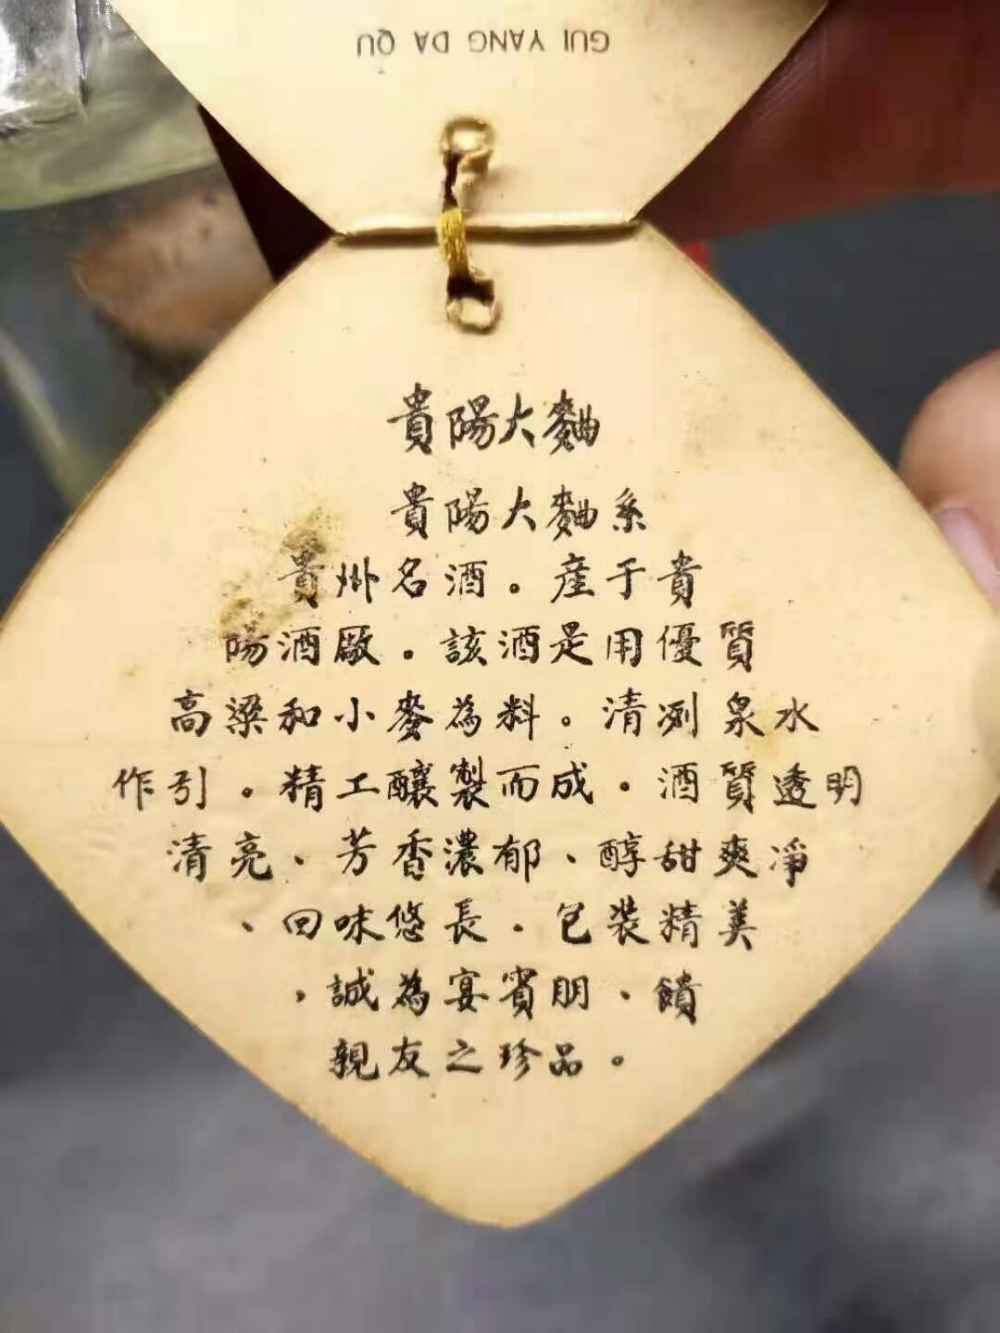 GUI YANG DA QU
貴陽大麯
貴陽大麯系
貴州名酒。産于貴
陽酒廠。該酒是用優質
高粱和小麥為料。清冽泉水
作引。精工釀製而成。酒質透明
清亮、芳香濃郁、醇甜爽淨
、回味悠長.包裝精美
,誠為宴賓朋、饋
親友之珍品。